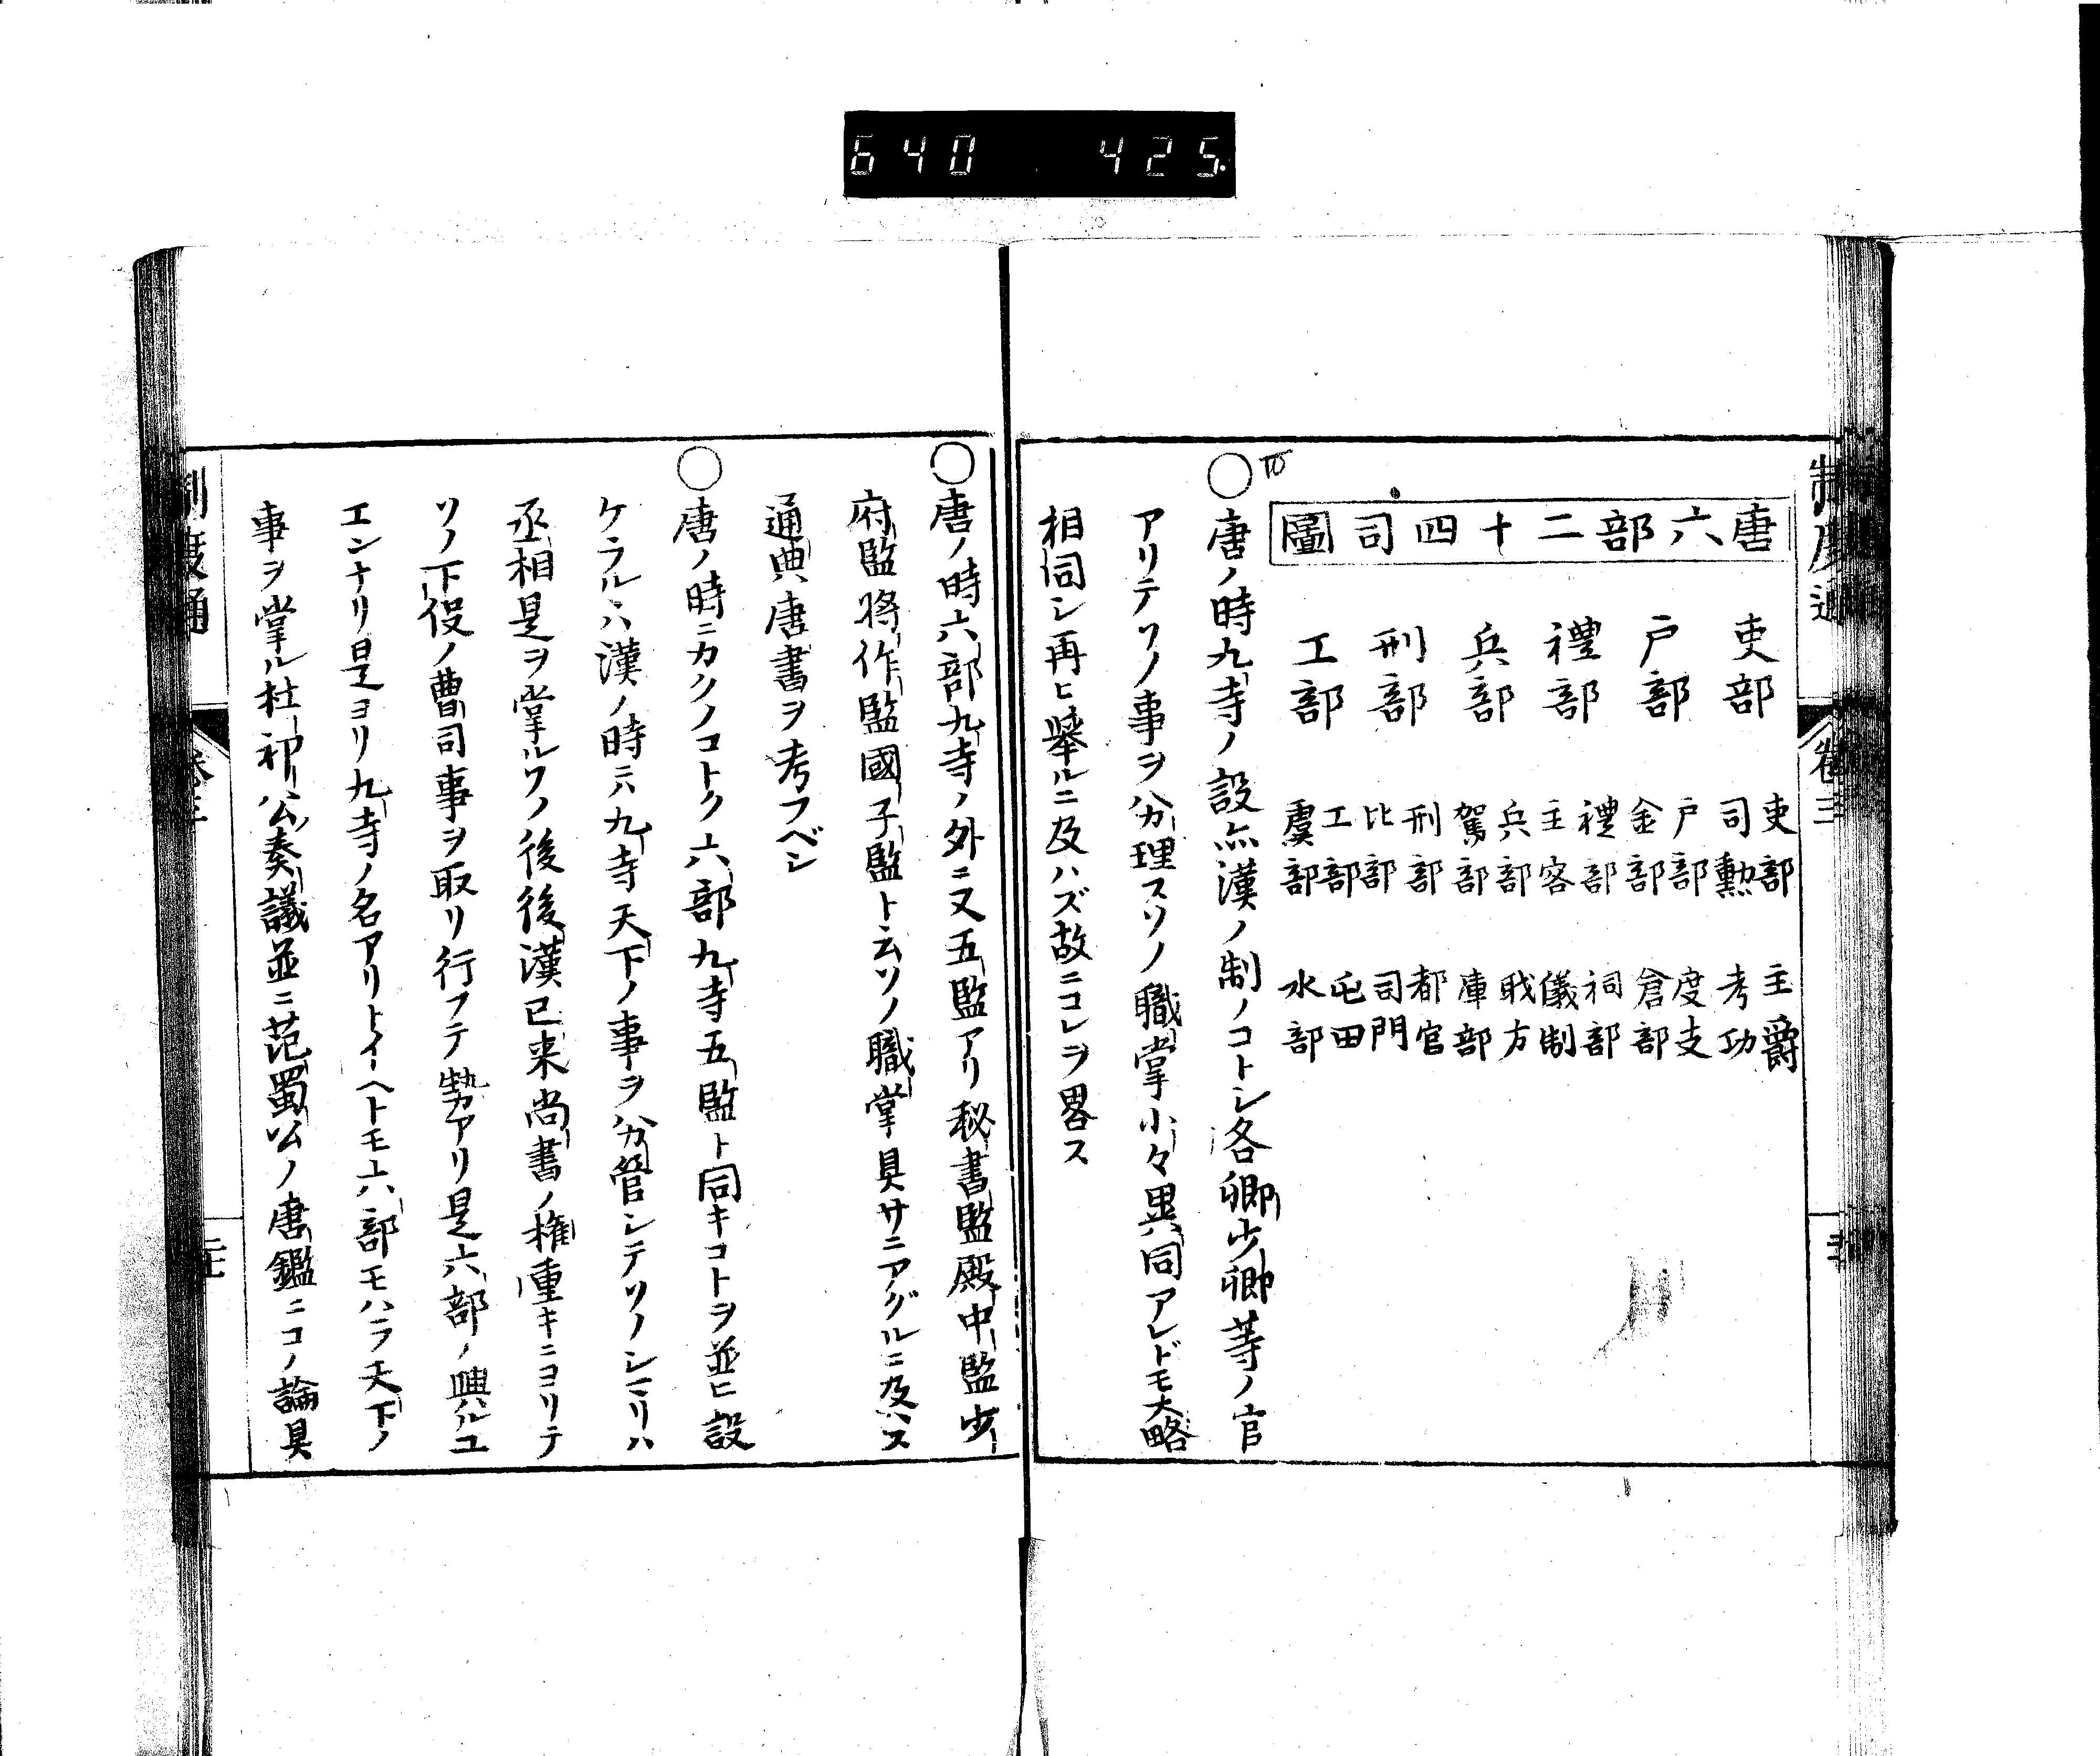 640 425
制度通 卷三
唐六部二十四司圖
吏部 吏部 主爵
司勲 考功
戸部 戸部 度支
金部 倉部
禮部 禮部 祠部
主客 儀制
兵部 兵部 戝方
駕部 庫部
刑部 刑部 都官
比部 司門
工部 工部 屯田
虞部 水部
○唐ノ時九寺ノ設亦漢ノ制ノコトシ各卿少卿等ノ官
アリテソノ事ヲ分理スソノ職掌小々異同アレドモ大略
相同シ再ヒ舉ルニ及ハズ故ニコレヲ畧ス
○唐ノ時六部九寺ノ外ニ又五監アリ秘書監殿中監少
府監將作監國子監ト云ソノ職掌具サニアグルニ及ハス
通典唐書ヲ考フベシ
○唐ノ時ニカクノコトク六部九寺五監ト同キコトヲ並ヒ設
ケラルヽハ漢ノ時ニハ九寺天下ノ事ヲ分管シテソノシマリハ
丞相是ヲ掌ルソノ後後漢已来尚書ノ権重キニヨリテ
ソノ下役ノ曹司事ヲ取リ行フテ勢アリ是六部ノ興ルユ
エンナリ是ヨリ九寺ノ名アリトイヘトモ六部モハラ天下ノ
事ヲ掌ル杜祁公奏議並ニ范蜀公ノ唐鑑ニコノ論具
制度通 卷三